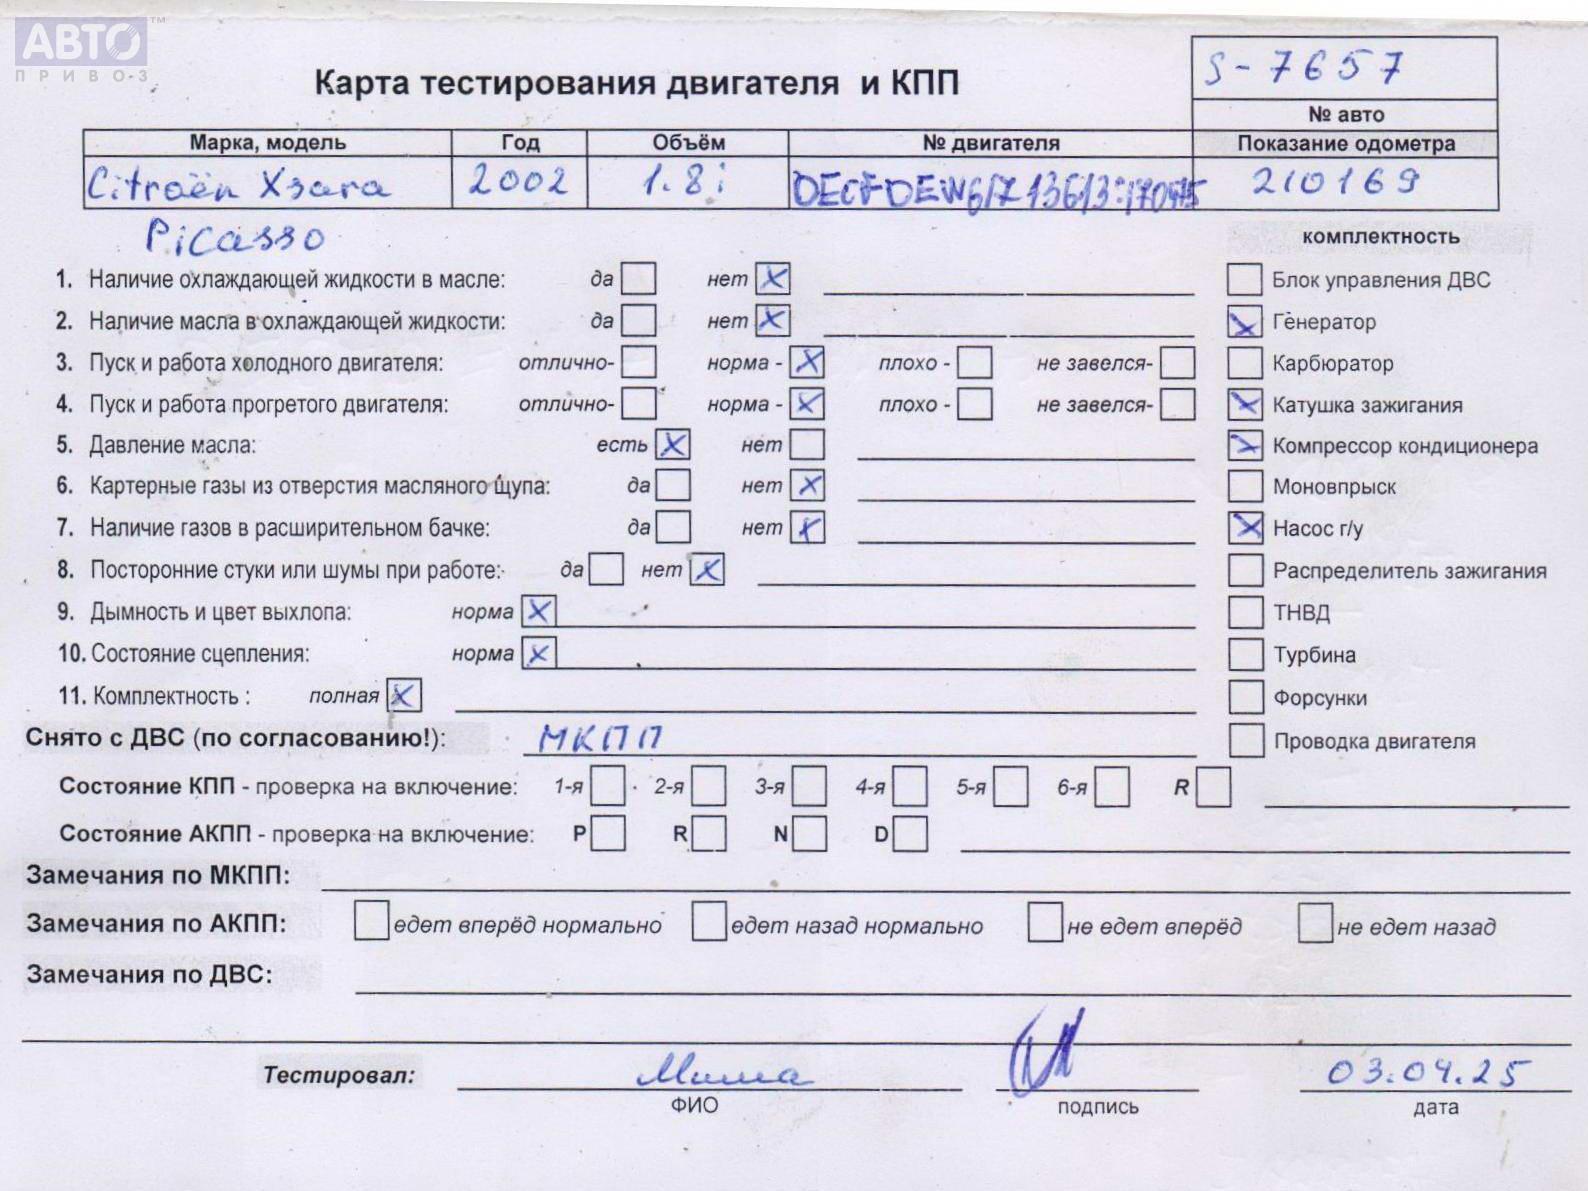 АВТО™
ПРИВОЗ
Карта тестирования двигателя и КПП
S-7657
№ авто
Марка, модель Год Объём № двигателя Показание одометра
Citroën Xsara 2002 1.8i 210169
Picasso
комплектность
1. Наличие охлаждающей жидкости в масле: да нет X Блок управления ДВС
2. Наличие масла в охлаждающей жидкости: да нет X X Генератор
3. Пуск и работа холодного двигателя: отлично- норма - X плохо - не завелся- Карбюратор
4. Пуск и работа прогретого двигателя: отлично- норма - X плохо - не завелся- X Катушка зажигания
5. Давление масла: есть X нет X Компрессор кондиционера
6. Картерные газы из отверстия масляного щупа: да нет X Моновпрыск
7. Наличие газов в расширительном бачке: да нет X X Насос г/у
8. Посторонние стуки или шумы при работе: да нет X Распределитель зажигания
9. Дымность и цвет выхлопа: норма X ТНВД
10. Состояние сцепления: норма X Турбина
11. Комплектность : полная X Форсунки
Снято с ДВС (по согласованию!): МКПП Проводка двигателя
Состояние КПП - проверка на включение: 1-я 2-я 3-я 4-я 5-я 6-я R
Состояние АКПП - проверка на включение: P R N D
Замечания по МКПП:
Замечания по АКПП: едет вперёд нормально едет назад нормально не едет вперёд не едет назад
Замечания по ДВС:
Тестировал: Миша 03.04.25
ФИО подпись дата